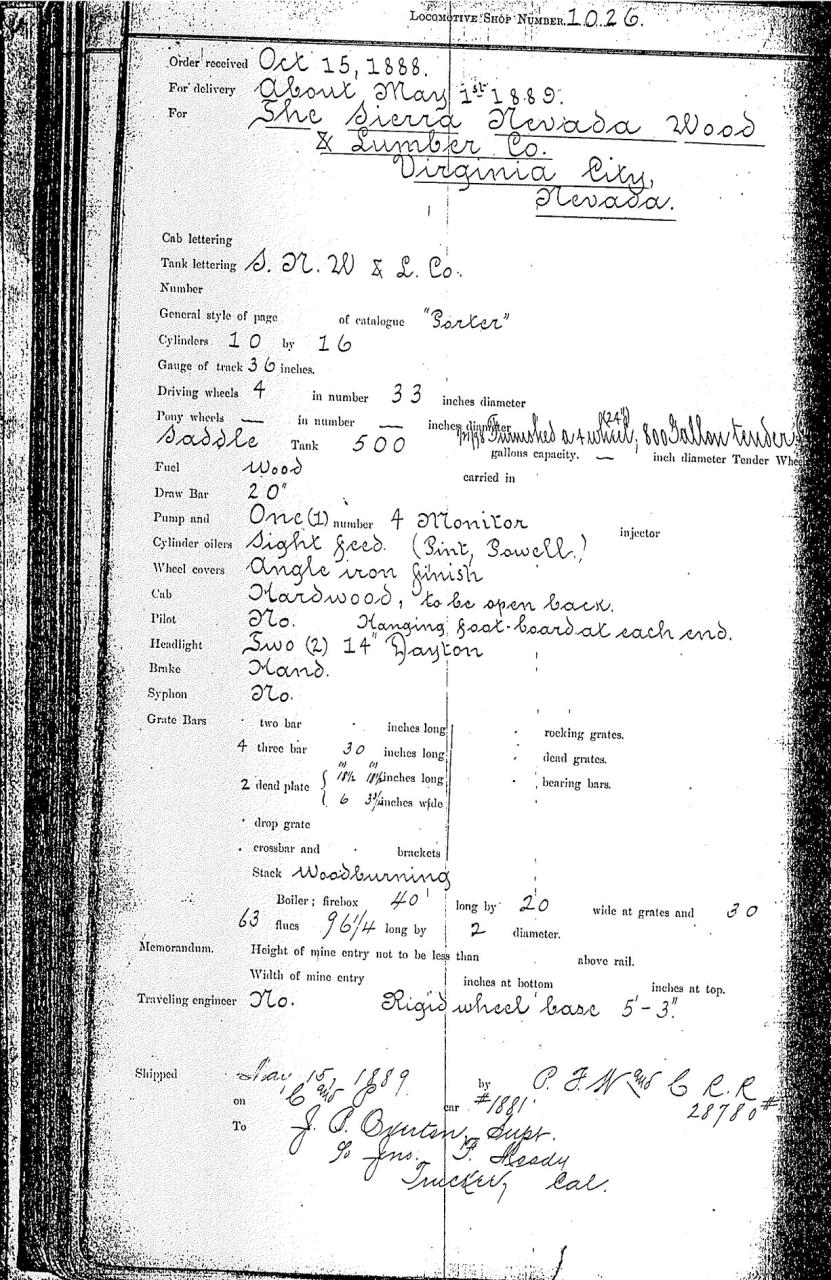 LOCOMOTIVE SHOP NUMBER. 1026.
Order received Oct 15, 1888.
For delivery About May 1st 1889.
For The Sierra Nevada Wood
& Lumber Co.
Virginia City,
Nevada.
Cab lettering
Tank lettering S. N. W & L. Co.
Number
General style of page of catalogue "Porter"
Cylinders 10 by 16
Gauge of track 36 inches.
Driving wheels 4 in number 33 inches diameter
Pony wheels — in number — inches diameter
Furnished a 4 wheel, (24") 800 Gallon tender
Saddle Tank 500 gallons capacity. — inch diameter Tender Whee
Fuel Wood carried in
Draw Bar 20"
Pump and One (1) number 4 Monitor injector
Cylinder oilers Sight feed. (Pint, Powell.)
Wheel covers Angle iron finish
Cab Hardwood, to be open back.
Pilot No. Hanging foot-board at each end.
Headlight Two (2) 14" Dayton
Brake Hand.
Syphon No.
Grate Bars two bar inches long rocking grates.
4 three bar 30 inches long dead grates.
2 dead plate { (1) 18½ (1) 18½ inches long bearing bars.
6 3¾ inches wide
drop grate
crossbar and brackets
Stack Woodburning
Boiler; firebox 40 long by 20 wide at grates and 30
63 flues 96¼ long by 2 diameter.
Memorandum. Height of mine entry not to be less than above rail.
Width of mine entry inches at bottom inches at top.
Traveling engineer No. Rigid wheel base 5'-3".
Shipped 15, 1889 by P. F. W and C R. R
on C and P car #1881 28780#
To J. P. Overton, Supt.
Jno. F. Moody
Truckee, Cal.